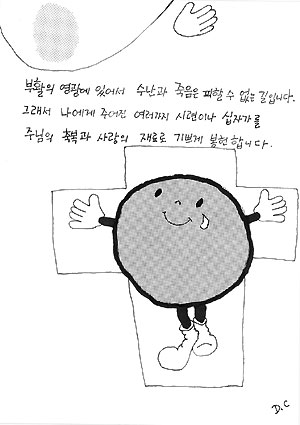 부활의 영광에 있어서 수난과 죽음은 피할 수 없는 길입니다.
그래서 나에게 주어진 여러가지 시련이나 십자가를
주님의 축복과 사랑의 재료로 기쁘게 봉헌합니다.
D.C